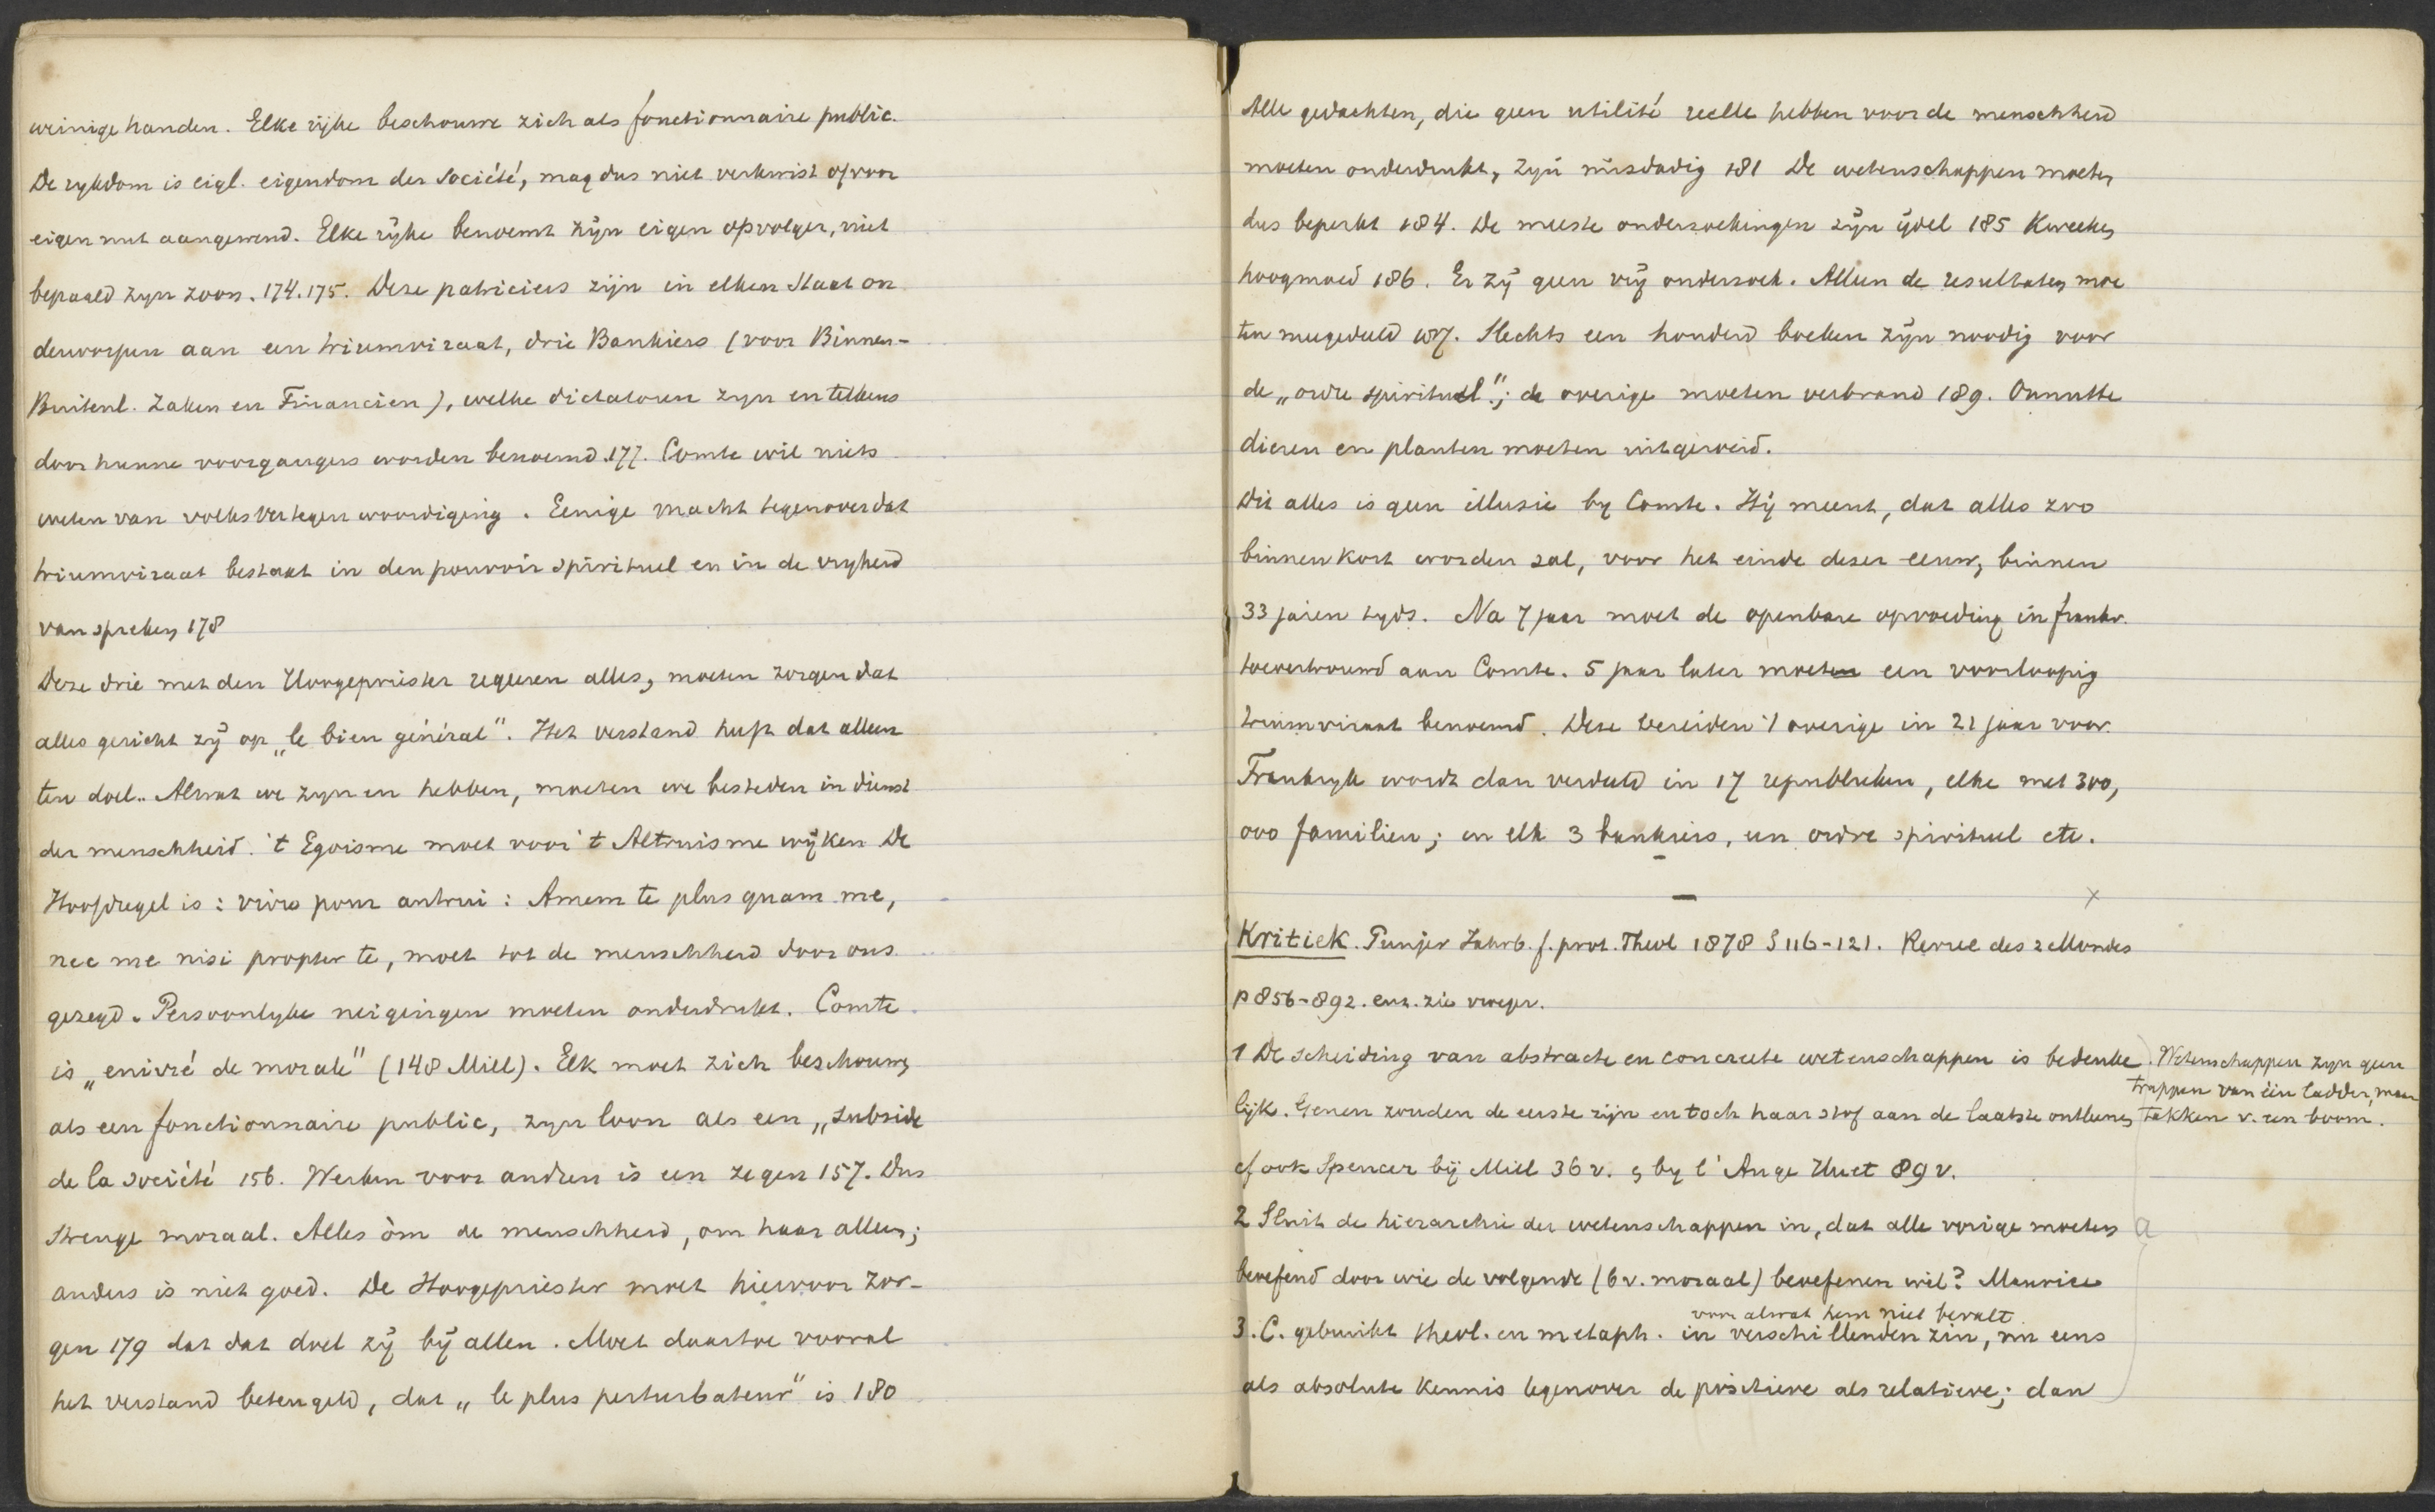 weinige handen. Elke rijke beschouwe zich als fonctionnaire public.
De rykdom is eigl. eigendom der Société, mag dus niet verkwist of voor
eigen nut aangewend. Elke rijke benoemt zijn eigen opvolger, niet
bepaald zyn zoon. 174.175. Deze patriciers zijn in elken Staat on
derworpen aan een triumviraat, drie Bankiers (voor Binnen-
Buitenl. Zaken en Financien), welke dictatoren zyn en telkens
door hunne voorgangers worden benoemd. 177. Comte wil niets
weten van volksvertegenwoordiging. Eenige macht tegenover dat
triumviraat bestaat in den pouvoir spirituel en in de vryheid
van spreken 178
Deze drie met den Hoogepriester regeeren alles, moeten zorgen dat
alles gericht zij op „le bien général". Het verstand heeft dat alleen
ten doel.. Alwat we zyn en hebben, moeten we besteden in dienst
der menschheid. 't Egoisme moet voor 't Altruisme wijken De
Hoofdregel is: vivre pour autrui: Amem te plus quam me,
nec me nisi propter te, moet tot de menschheid door ons
gezegd. Persoonlyke neigingen moeten onderdrukt. Comte
is „enivré de morale" (148 Mill). Elk moet zich beschouwen
als een fonctionnaire public, zyn loon als een „subside
de la société 156. Werken voor andren is een zegen 157. Dus
strenge moraal. Alles òm de menschheid, om haar alleen;
anders is niet goed. De Hoogepriester moet hiervoor zor-
gen 179 dat dat doel zij bij allen. Moet daartoe vooral
het verstand beteugeld, dat „le plus perturbateur" is 180
Alle gedachten, die geen utilité reelle hebben voor de menschheid
moeten onderdrukt, zijn misdadig 181 De wetenschappen moeten
dus beperkt 184. De meeste onderzoekingen zijn ijdel 185 Kweeken
hoogmoed 186. Er zij geen vrij onderzoek. Alleen de resultaten moe
ten meegedeeld 187. Slechts een honderd boeken zijn noodig voor
de „ordre spirituel"; de overige moeten verbrand 189. Onnutte
dieren en planten moeten uitgeroeid.
Dit alles is geen illusie by Comte. Hij meent, dat alles zoo
binnen kort worden zal, voor het einde dezer eeuw, binnen
33 jaren tyds. Na 7 jaar moet de openbare opvoeding in frankr.
toevertrouwd aan Comte. 5 jaar later moeten een voorloopig
triumviraat benoemd. Deze bereiden 't overige in 21 jaar voor.
Frankryk wordt dan verdeeld in 17 republieken, elke met 300,
000 familien; en elk 3 bankiers, een ordre spirituel etc.
Kritiek. Punjer Jahrb. f. prot. Theol 1878 S 116-121. Revue des 2 Mondes
p 856-892. enz. zie vroeger.
1 De scheiding van abstracte en concrete wetenschappen is bedenke
lijk. Genen zouden de eerste zijn en toch haar stof aan de laatste ontleenen
. Wetenschappen zyn geen
trappen van één ladder, maar
takken v. een boom.
cf ook Spencer bij Mill 36 v. & by l'Ange Huet 89 v.
2 Sluit de hierarchie der wetenschappen in, dat alle vorige moeten
beoefend door wie de volgende (b v. moraal) beoefenen wil? Maurice
a
voor alwat hem niet bevalt
3. C. gebruikt theol. en metaph. in verschillenden zin, nu eens
als absolute kennis tegenover de positieve als relatieve; dan